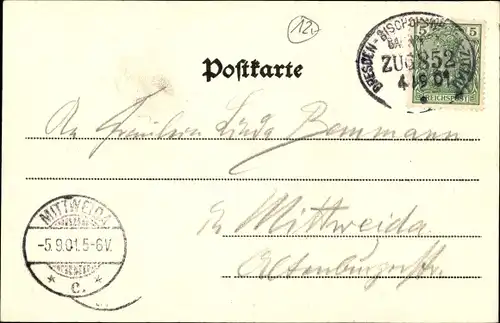 12.
DRESDEN - BISCHOFSWERDA
ZUG 852
4 9 01
5 5
REICHSPOST
Postkarte
An Fräulein Linda Bemmann
in Mittweida
Altenburgerstr.
MITTWEIDA
-5.9.01.5-6V.
* c. *